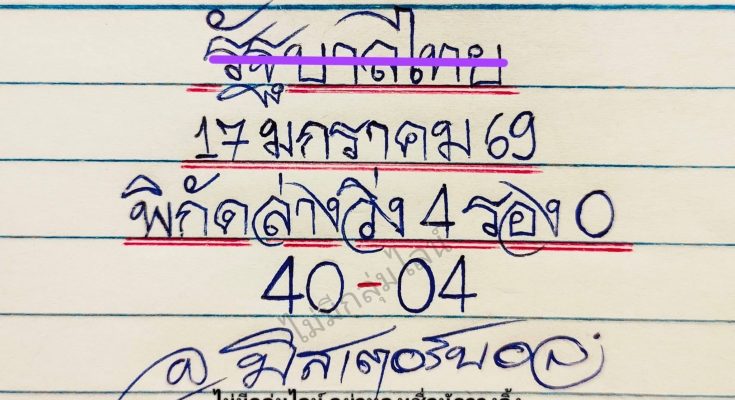 รัฐบาลไทย
17 มกราคม 69
พิกัดล่างวิ่ง 4 รอง 0
40-04
ไม่มีกลุ่มไลน์
อ.มิสเตอร์บอล